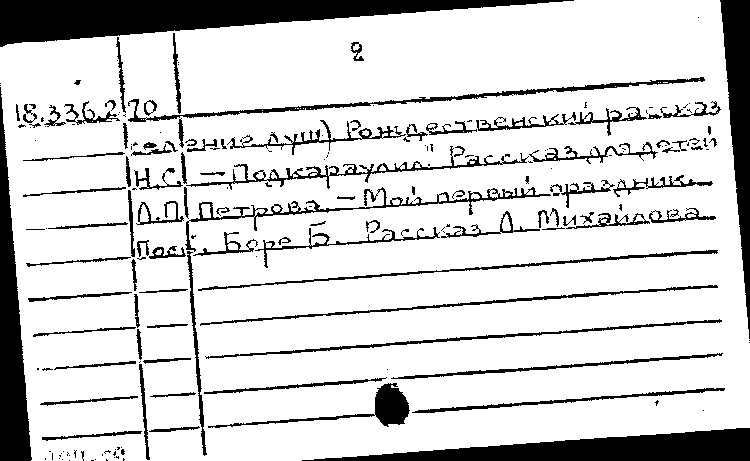 2
18.336.2.70
селение душ) Рождественский рассказ
Н.С. – „Подкараулил." Рассказ для детей
Л.П. Петрова. – Мой первый праздник.
Посв. Боре Б. Рассказ Л. Михайлова